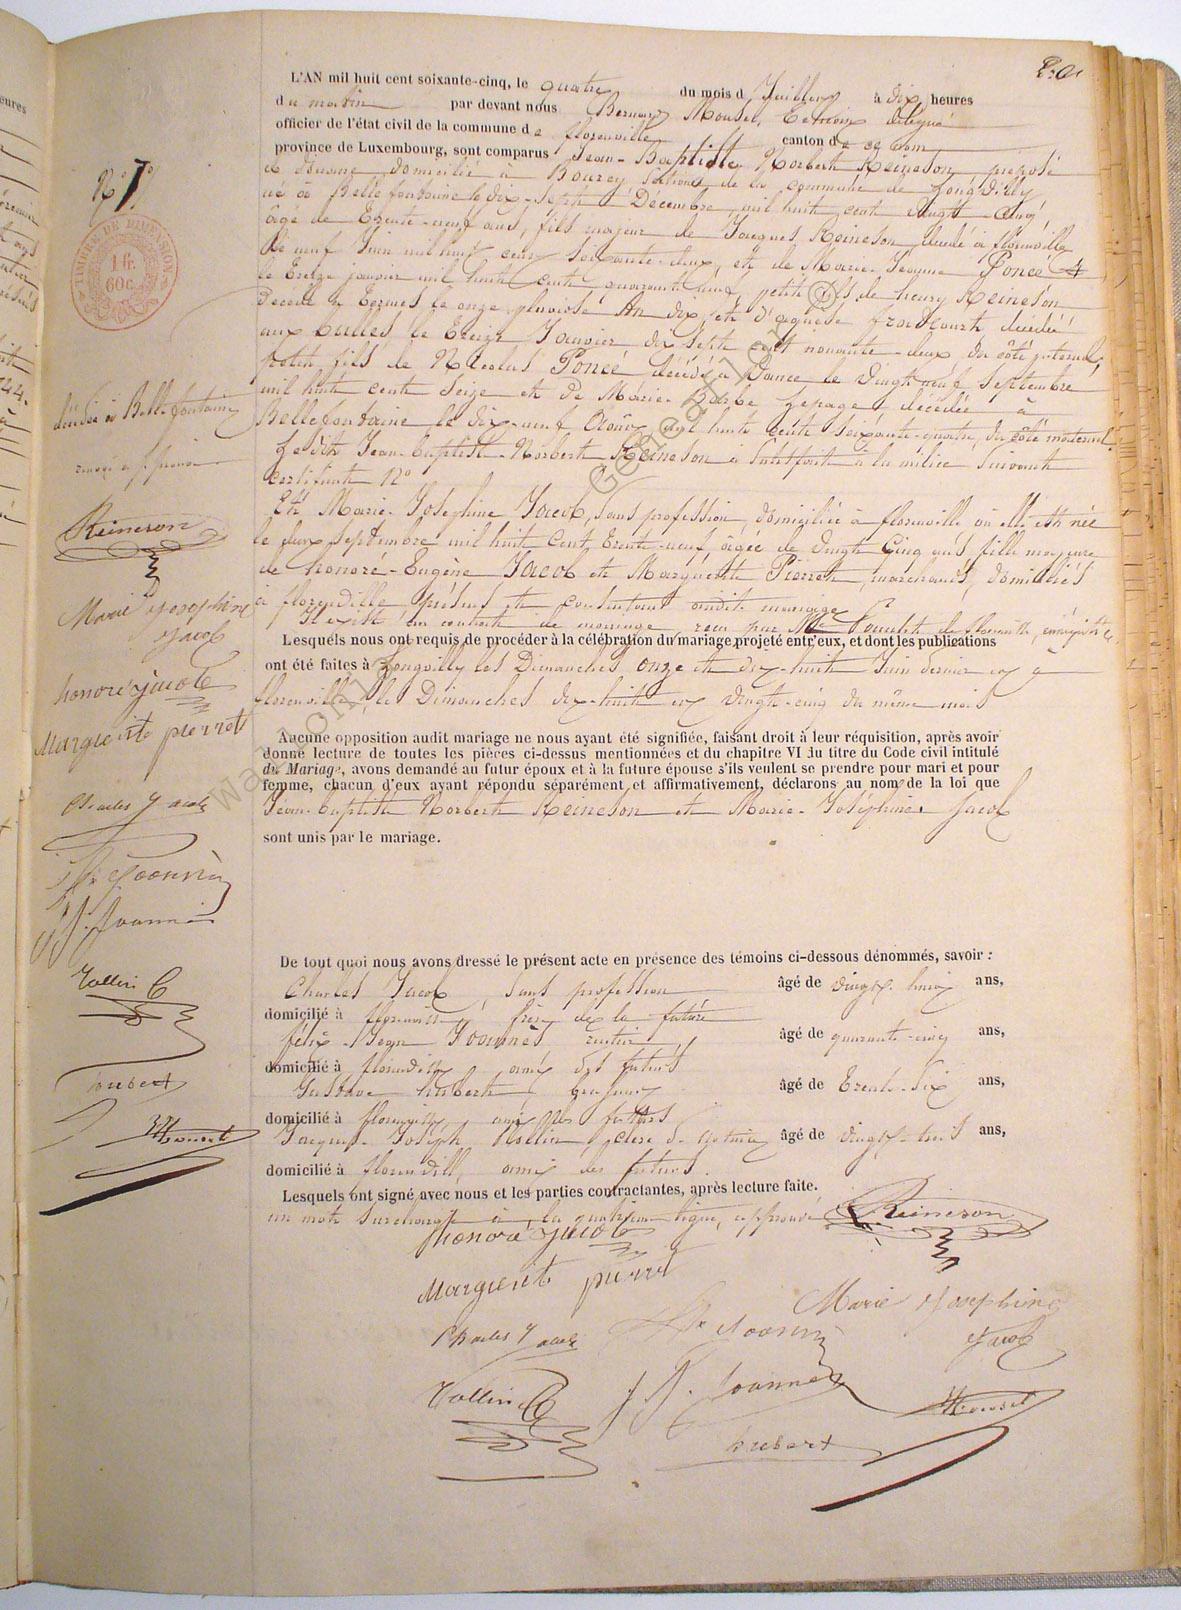 L'AN mil huit cent soixante-cinq, le quatre du mois d Juillet à dix heures
du matin par devant nous Bernard Mousel, Echevin délégué
officier de l'état civil de la commune de florenville canton de ce nom
province de Luxembourg, sont comparus Jean-Baptiste Norbert Reineson préposé
de Douane, domicilié à Bourcy section de la commune de Longvilly
né à Bellefontaine le dix-sept Décembre mil huit cent vingt-cinq,
âgé de Trente-neuf ans, fils majeur de Jacques Reineson, décédé à florenville
le neuf Juin mil huit cent soixante-deux, et de Marie-Jeanne Poncé
le Treize janvier mil huit cent quarante neuf, petit fils de henry Reineson
Décédé à Termes le onze pluviose An dix, et d'agnèse décédée
aux bulles le Treize Janvier dix sept cent nonante-deux du côté paternel,
petit fils de Nicolas Poncé décédé à Dance le vingt neuf Septembre
mil huit cent seize et de Marie-Barbe Lepage, décédée à
Bellefontaine le dix-neuf Août mil huit cent soixante-quatre, du côté maternel.
Le dit Jean-baptiste-Norbert Reineson a satisfait à la milice suivant
certificat No
Et Marie-Joséphine Jacob, sans profession, domiciliée à florenville où elle est née
le deux Septembre mil huit cent Trente-neuf, âgée de vingt cinq ans fille majeure
de honoré-Eugène Jacob et Marguerite Pierret, marchands, domiciliés
à florenville présens et consentans audit mariage
Il existe un contrat de mariage reçu par Me de florenville, enrégistré
Lesquels nous ont requis de procéder à la célébration du mariage projeté entr'eux, et dont les publications
ont été faites à Longvilly les Dimanches onze et dix-huit Juin dernier et à
florenville, les Dimanches dix-huit et vingt-cinq du même mois
Aucune opposition audit mariage ne nous ayant été signifiée, faisant droit à leur réquisition, après avoir
donné lecture de toutes les pièces ci-dessus mentionnées et du chapitre VI du titre du Code civil intitulé
du Mariage, avons demandé au futur époux et à la future épouse s'ils veulent se prendre pour mari et pour
femme, chacun d'eux ayant répondu séparément et affirmativement, déclarons au nom de la loi que
Jean-baptiste Norbert Reineson et Marie-Joséphine Jacob
sont unis par le mariage.
De tout quoi nous avons dressé le présent acte en présence des témoins ci-dessous dénommés, savoir :
Charles Jacob, sans profession âgé de vingt-huit ans,
domicilié à florenville, frère de la future
félix-Jean Joannès rentier âgé de quarante-cinq ans,
domicilié à florenville ami des futurs
Gustave hubert âgé de Trente-Six ans,
domicilié à florenville, ami des futurs
Jacques-Joseph Rollin, clerc de notaire âgé de vingt-trois ans,
domicilié à florenville, ami des futurs.
Lesquels ont signé avec nous et les parties contractantes, après lecture faite.
un mot surchargé à la quatrième ligne, approuvé Reineson
honoré jacob
Marguerite pierret
Marie Josephine
Jacob
Charles Jacob
Joannès
Rollin
J. Joannès
hubert
Mousel
No 7
TIMBRE DE DIMENSION
1 fr.
60c.
décédée à Bellefontaine
renvoi approuvé
Reineson
Marie Josephine
Jacob
honoré jacob
Marguerite pierret
Charles Jacob
Joannès
J. Joannès
Rollin
hubert
Mousel